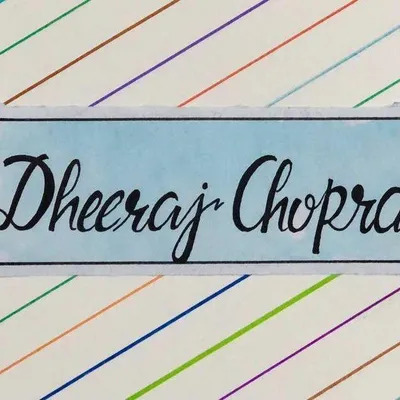 Dheeraj Chopra